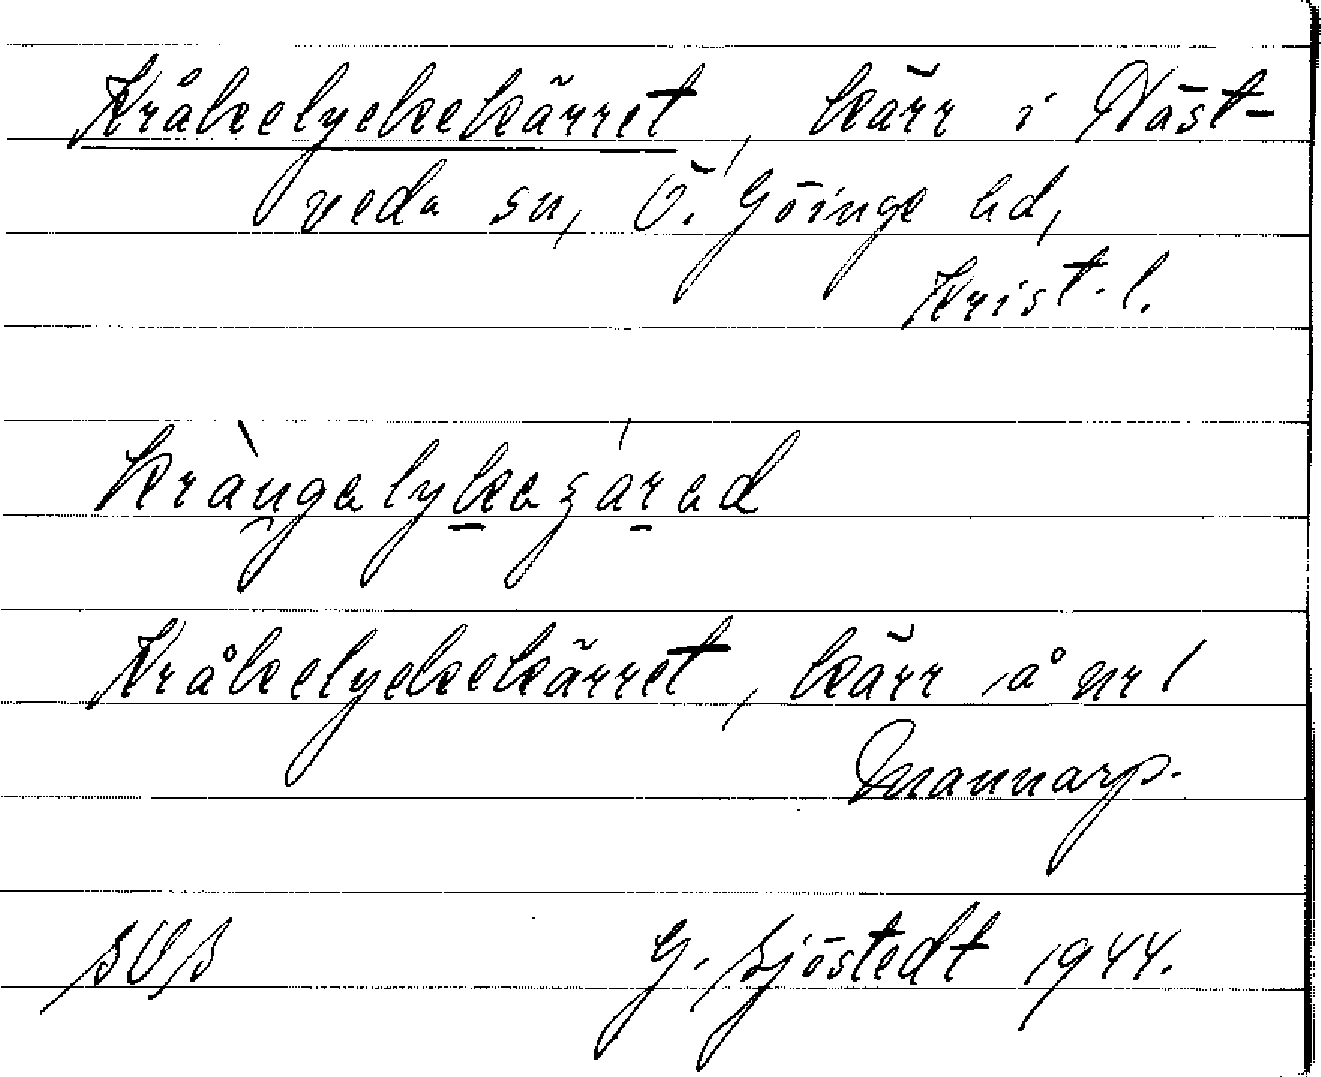 Kråkelyckekärret, kärr i Näst-
veda sn, Ö. Göinge hd,
Krist. l.
Kråkelyckekärret, kärr å nr 1
Mannarp.
SOS G. Sjöstedt 1944.